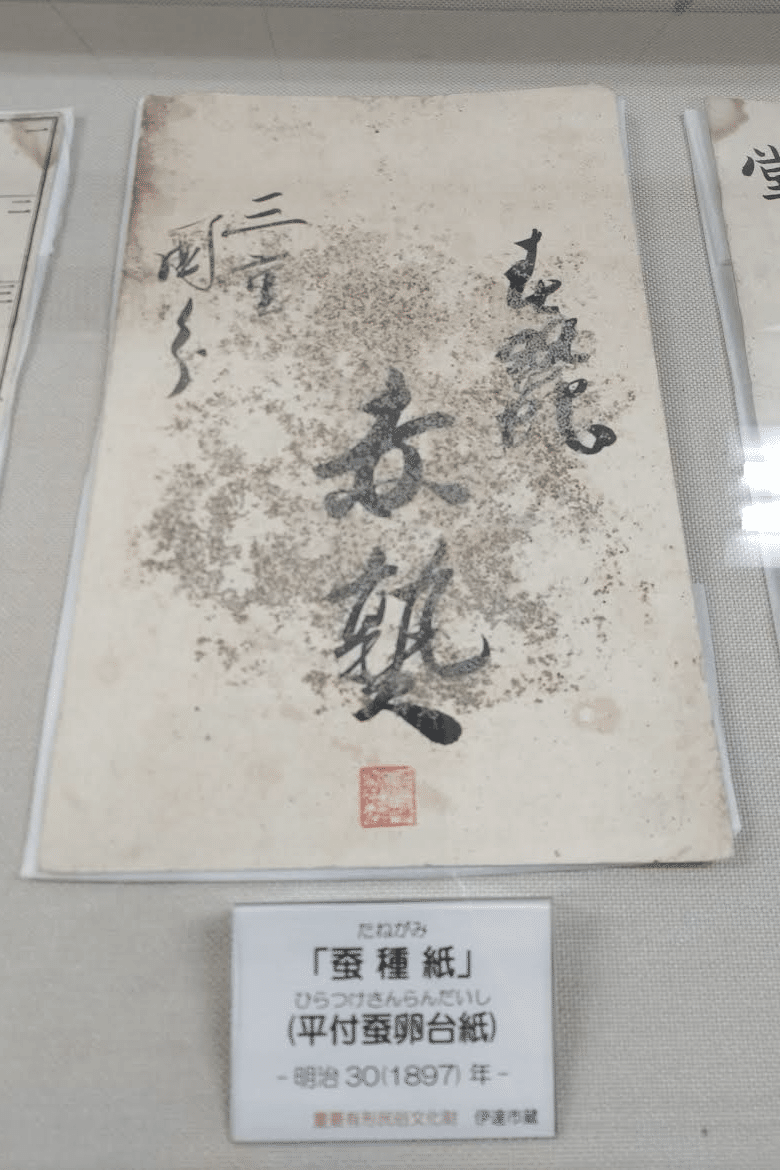 堂
赤熟
三重
一
二
三
たねがみ
「蚕種紙」
ひらつけさんらんだいし
(平付蚕卵台紙)
- 明治 30(1897) 年 -
重要有形民俗文化財 伊達市蔵